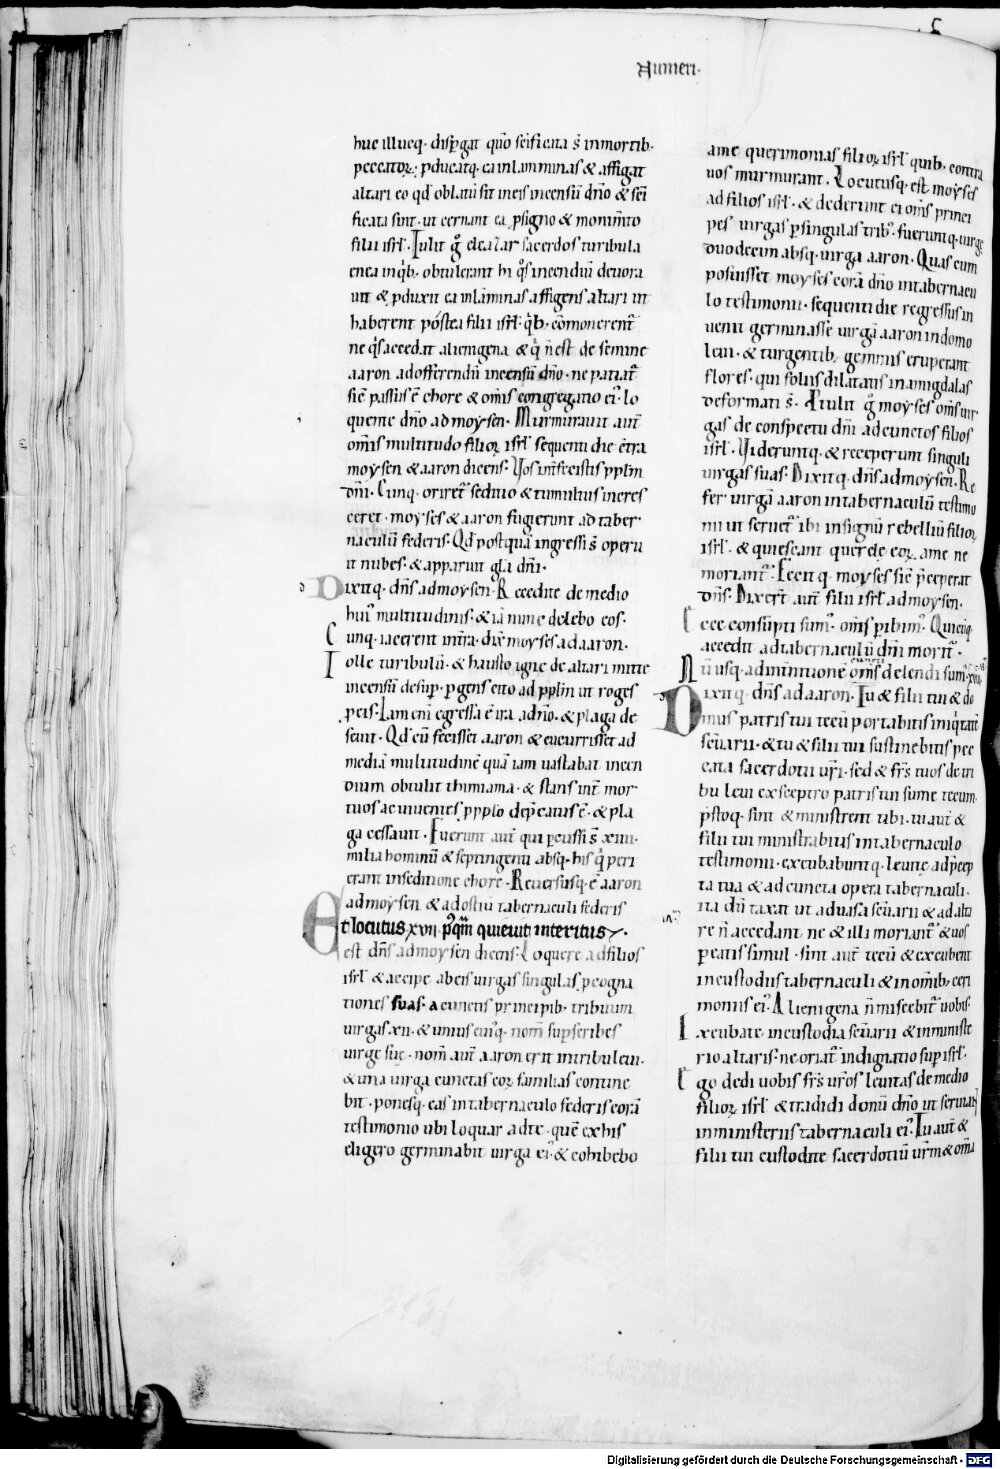 Numeri.
huc illucq. dispgat qm̄o scificata s̄ in mortib.
peccatoꝝ; pducatq. ea in lamminas & affigat
altari eo qd̓ oblatū sit in eis incensū dn̄o & scī
ficata sint. ut cernant ea ꝑ signo & monim̄to
filii isrl̄. Tulit ḡ eleazar sacerdos turibula
enea in q̓b. obtulerant hi q̓s incendiū devora
vit & pduxit ea in lāminas affigens altari ut
haberent postea filii isrl̄ q̓b. cōmonerent̄
ne q̓s accedat alienigena & q̓ n̄ est de semine
aaron ad offerendū incensū dn̄o. ne patiat̄
sic̄ passus ē chore & om̄is congregatio ei᾽. lo
quente dn̄o ad moysen. Murmuravit aut̄
om̄is multitudo filioꝝ isrl̄ sequenti die c̄tra
moysen & aaron dicens. Vos int̄fecistis pp̄lm
dn̄i. Cunq. oriret̄ seditio & tumultus incres
ceret. moyses & aaron fugierunt ad taber
naculū federis. Qd̓ postquā ingressi s̄ operu
it nubes. & apparuit gl̄a dn̄i.
Dixitq. dn̄s ad moysen. Recedite de medio
hui᾽ multitudinis. & iā nunc delebo eos.
Cunq. iacerent in t̄ra. dix̄ moyses ad aaron.
Tolle turibulū. & hausto igne de altari mitte
incensū desup. pgens cito ad pp̄lm ut roges
p eis. Iam eni᾽ egressa ē ira a dn̄o. & plaga de
seuit. Qd̓ cū fecisset aaron & cucurrisset ad
mediā multitudinē quā iam vastabat incen
dium obtulit thimiama. & stans int̄ mor
tuos ac viventes p pp̄lo dep̄catus ē. & pla
ga cessavit. Fuerunt aut̄ qui pcussi s̄ xiiii.
milia hominū & septingenti absq. his q̓ peri
erant in seditione chore. Reversusq. ē aaron
ad moysen & ad ostiū tabernaculi federis
Et locutus xvii. p᾽qm̄ quievit interitus.
est dn̄s ad moysen dicens. Loquere ad filios
isrl̄ & accipe ab eis virgas singulas p cogna
tiones suas. a cunctis principib. tribuum
virgas xii. & unius cui᾽q. nom̄ supscribes
virge sue. nom̄ aut̄ aaron erit in tribu levi.
& una virga cunctas eoꝝ familias contine
bit. ponesq. eas in tabernaculo federis corā
testimonio ubi loquar ad te. quē ex his
eligero germinabit virga ei᾽. & cohibebo
a me querimonias filioꝝ isrl̄ quib. contra
vos murmurant. Locutusq. est moyses
ad filios isrl̄. & dederunt ei om̄s princi
pes virgas p singulas trib᾽. fueruntq. virge
duodecim absq. virga aaron. Quas cum
posuisset moyses corā dn̄o in tabernacu
lo testimonii. sequenti die regressus in
venit germinasse virgā aaron in domo
levi. & turgentib. gemmis eruperant
flores. qui foliis dilatatis in amigdalas
deformati s̄. Ptulit ḡ moyses om̄s vir
gas de conspectu dn̄i ad cunctos filios
isrl̄. Videruntq. & receperunt singuli
virgas suas. Dixitq. dn̄s ad moysen. Re
fer virgā aaron in tabernaculū testimo
nii ut servet̄ ibi in signū rebelliū filioꝝ
isrl̄. & quiescant querele eoꝝ. a me ne
moriant̄. Fecitq. moyses sic̄ p̄ceperat
dn̄s. Dixer̄t aut̄ filii isrl̄ ad moysen.
Ecce consūpti sum᾽. om̄s pibim᾽. Quicūq.
accedit ad tabernaculū dn̄i morit̄.
Nū usq. ad int̄nitionē cuncti om̄s delendi sum᾽. xviii
Dixitq. dn̄s ad aaron. Tu & filii tui & do
mus patris tui tecū portabitis iniq̓tatē
sc̄uarii. & tu & filii tui sustinebitis pec
cata sacerdotii vr̄i. sed & frs̄ tuos de tri
bu levi ex sceptro patris tui sume tecum.
p̄stoq. sint & ministrent tibi. tu aut̄ &
filii tui ministrabitis in tabernaculo
testimonii. excubabuntq. levite ad p̄cep
ta tua & ad cuncta opera tabernaculi.
ita dū taxat ut ad vasa sc̄uarii & ad alta
re n̄ accedant. ne & illi moriant̄ & vos
pereatis simul. sint aut̄ tecū & excubent
in custodiis tabernaculi & in om̄ib. ceri
moniis ei᾽. Alienigena n̄ miscebit̄ vobis.
Excubate in custodia sc̄uarii & in ministe
rio altaris. ne oriat̄ indignatio sup isrl̄.
Ego dedi vobis frs̄ vr̄os levitas de medio
filioꝝ isrl̄ & tradidi donū dn̄o ut serviat̄
in ministeriis tabernaculi ei᾽. Tu aut̄ &
filii tui custodite sacerdotiū vr̄m & om̄a
Digitalisierung gefördert durch die Deutsche Forschungsgemeinschaft - DFG